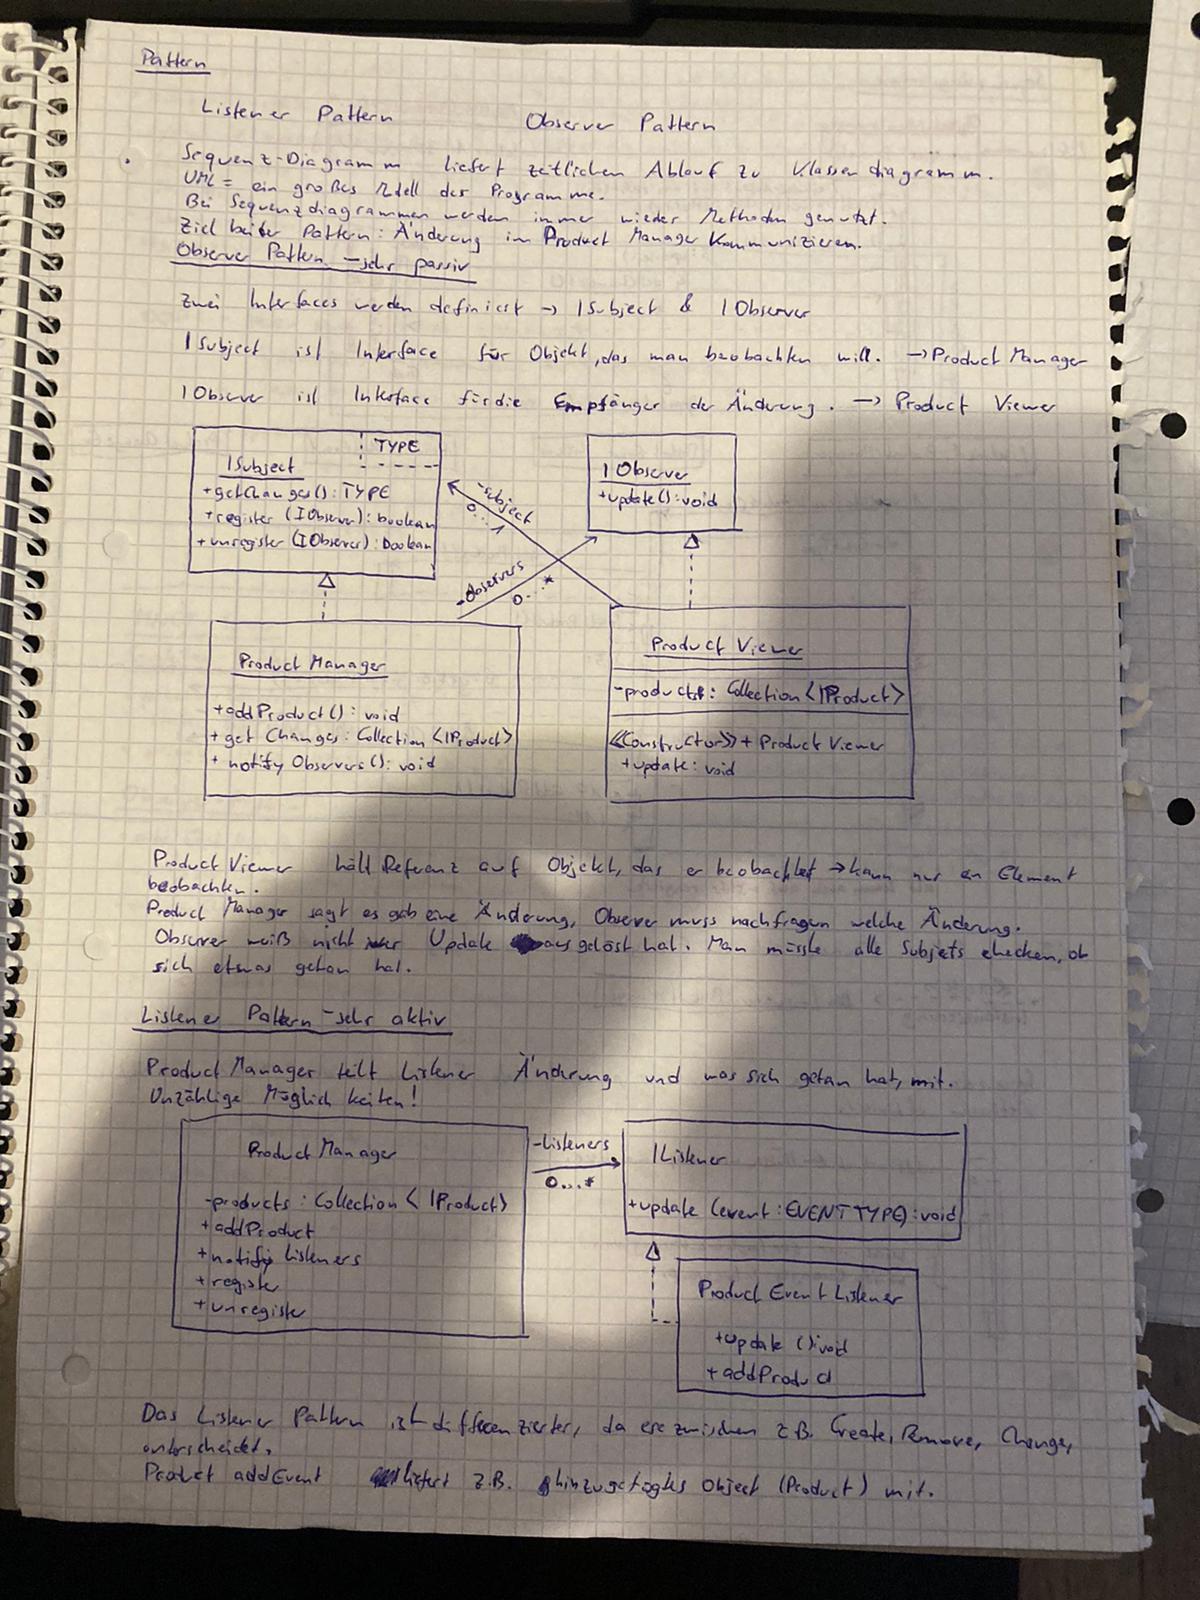 Pattern
Listener Pattern
Observer Pattern
Sequenz-Diagramm liefert zeitlichen Ablauf zu Klassendiagramm.
UML = ein großes Modell des Programms.
Bei Sequenzdiagrammen werden immer wieder Methoden genutzt.
Ziel beider Pattern: Änderung im Product Manager kommunizieren.
Observer Pattern - sehr passiv
Zwei Interfaces werden definiert → ISubject & IObserver
ISubject ist Interface für Objekt, das man beobachten will. → Product Manager
IObserver ist Interface für die Empfänger der Änderung. → Product Viewer
TYPE
ISubject
+getChanges(): TYPE
+register (IObserver): boolean
+unregister (IObserver): boolean
IObserver
+update(): void
-subject
0...1
-observers
0...*
Product Manager
+addProduct(): void
+ get Changes: Collection <IProduct>
+ notify Observers(): void
Product Viewer
-products: Collection <IProduct>
<<Constructor>> + Product Viewer
+update: void
Product Viewer hält Referenz auf Objekt, das er beobachtet → kann nur ein Element
beobachten.
Product Manager sagt es gab eine Änderung, Observer muss nachfragen welche Änderung.
Observer weiß nicht wer Update ausgelöst hat. Man müsste alle Subjets checken, ob
sich etwas getan hat.
Listener Pattern - sehr aktiv
Product Manager teilt Listener Änderung und was sich getan hat, mit.
Unzählige Möglichkeiten!
Product Manager
-products: Collection <IProduct>
+addProduct
+notify Listeners
+register
+unregister
-Listeners
0...*
IListener
+update (event: EVENTTYPE): void
Product Event Listener
+update (): void
+addProduct
Das Listener Pattern ist differenzierter, da es zwischen z.B. Create, Remove, Change,
unterscheidet.
Product addEvent liefert z.B. hinzugefügtes Object (Product) mit.